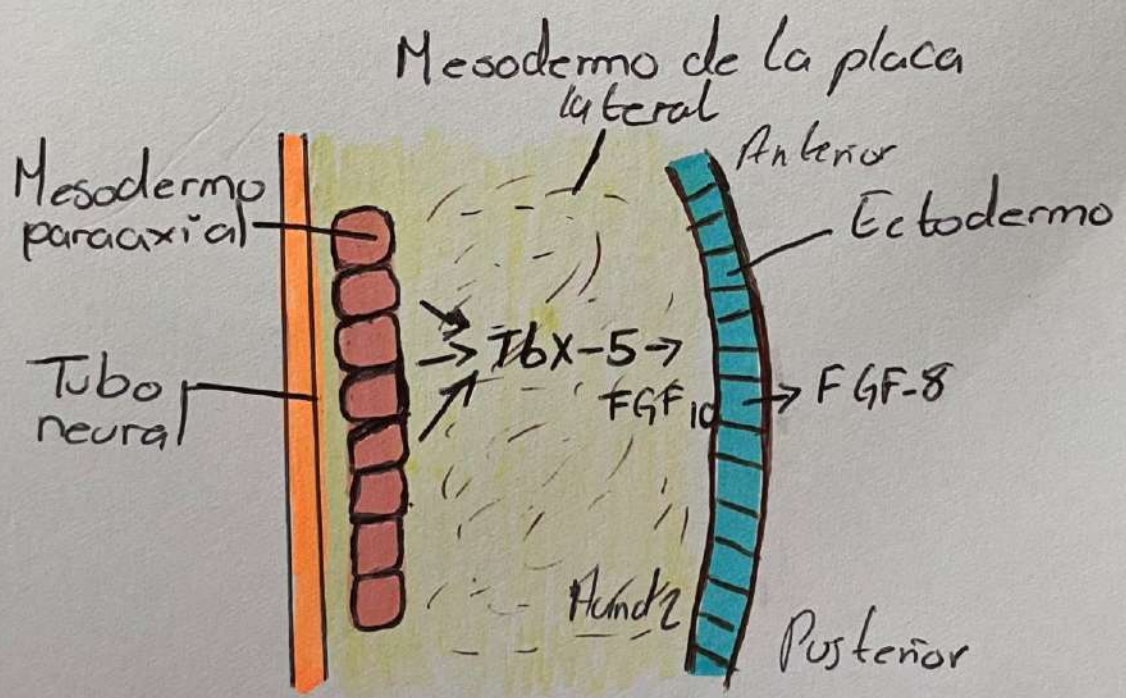 Mesodermo de la placa
lateral
Anterior
Mesodermo
paraaxial
Ectodermo
Tbx-5
FGF10
FGF-8
Tubo
neural
Posterior